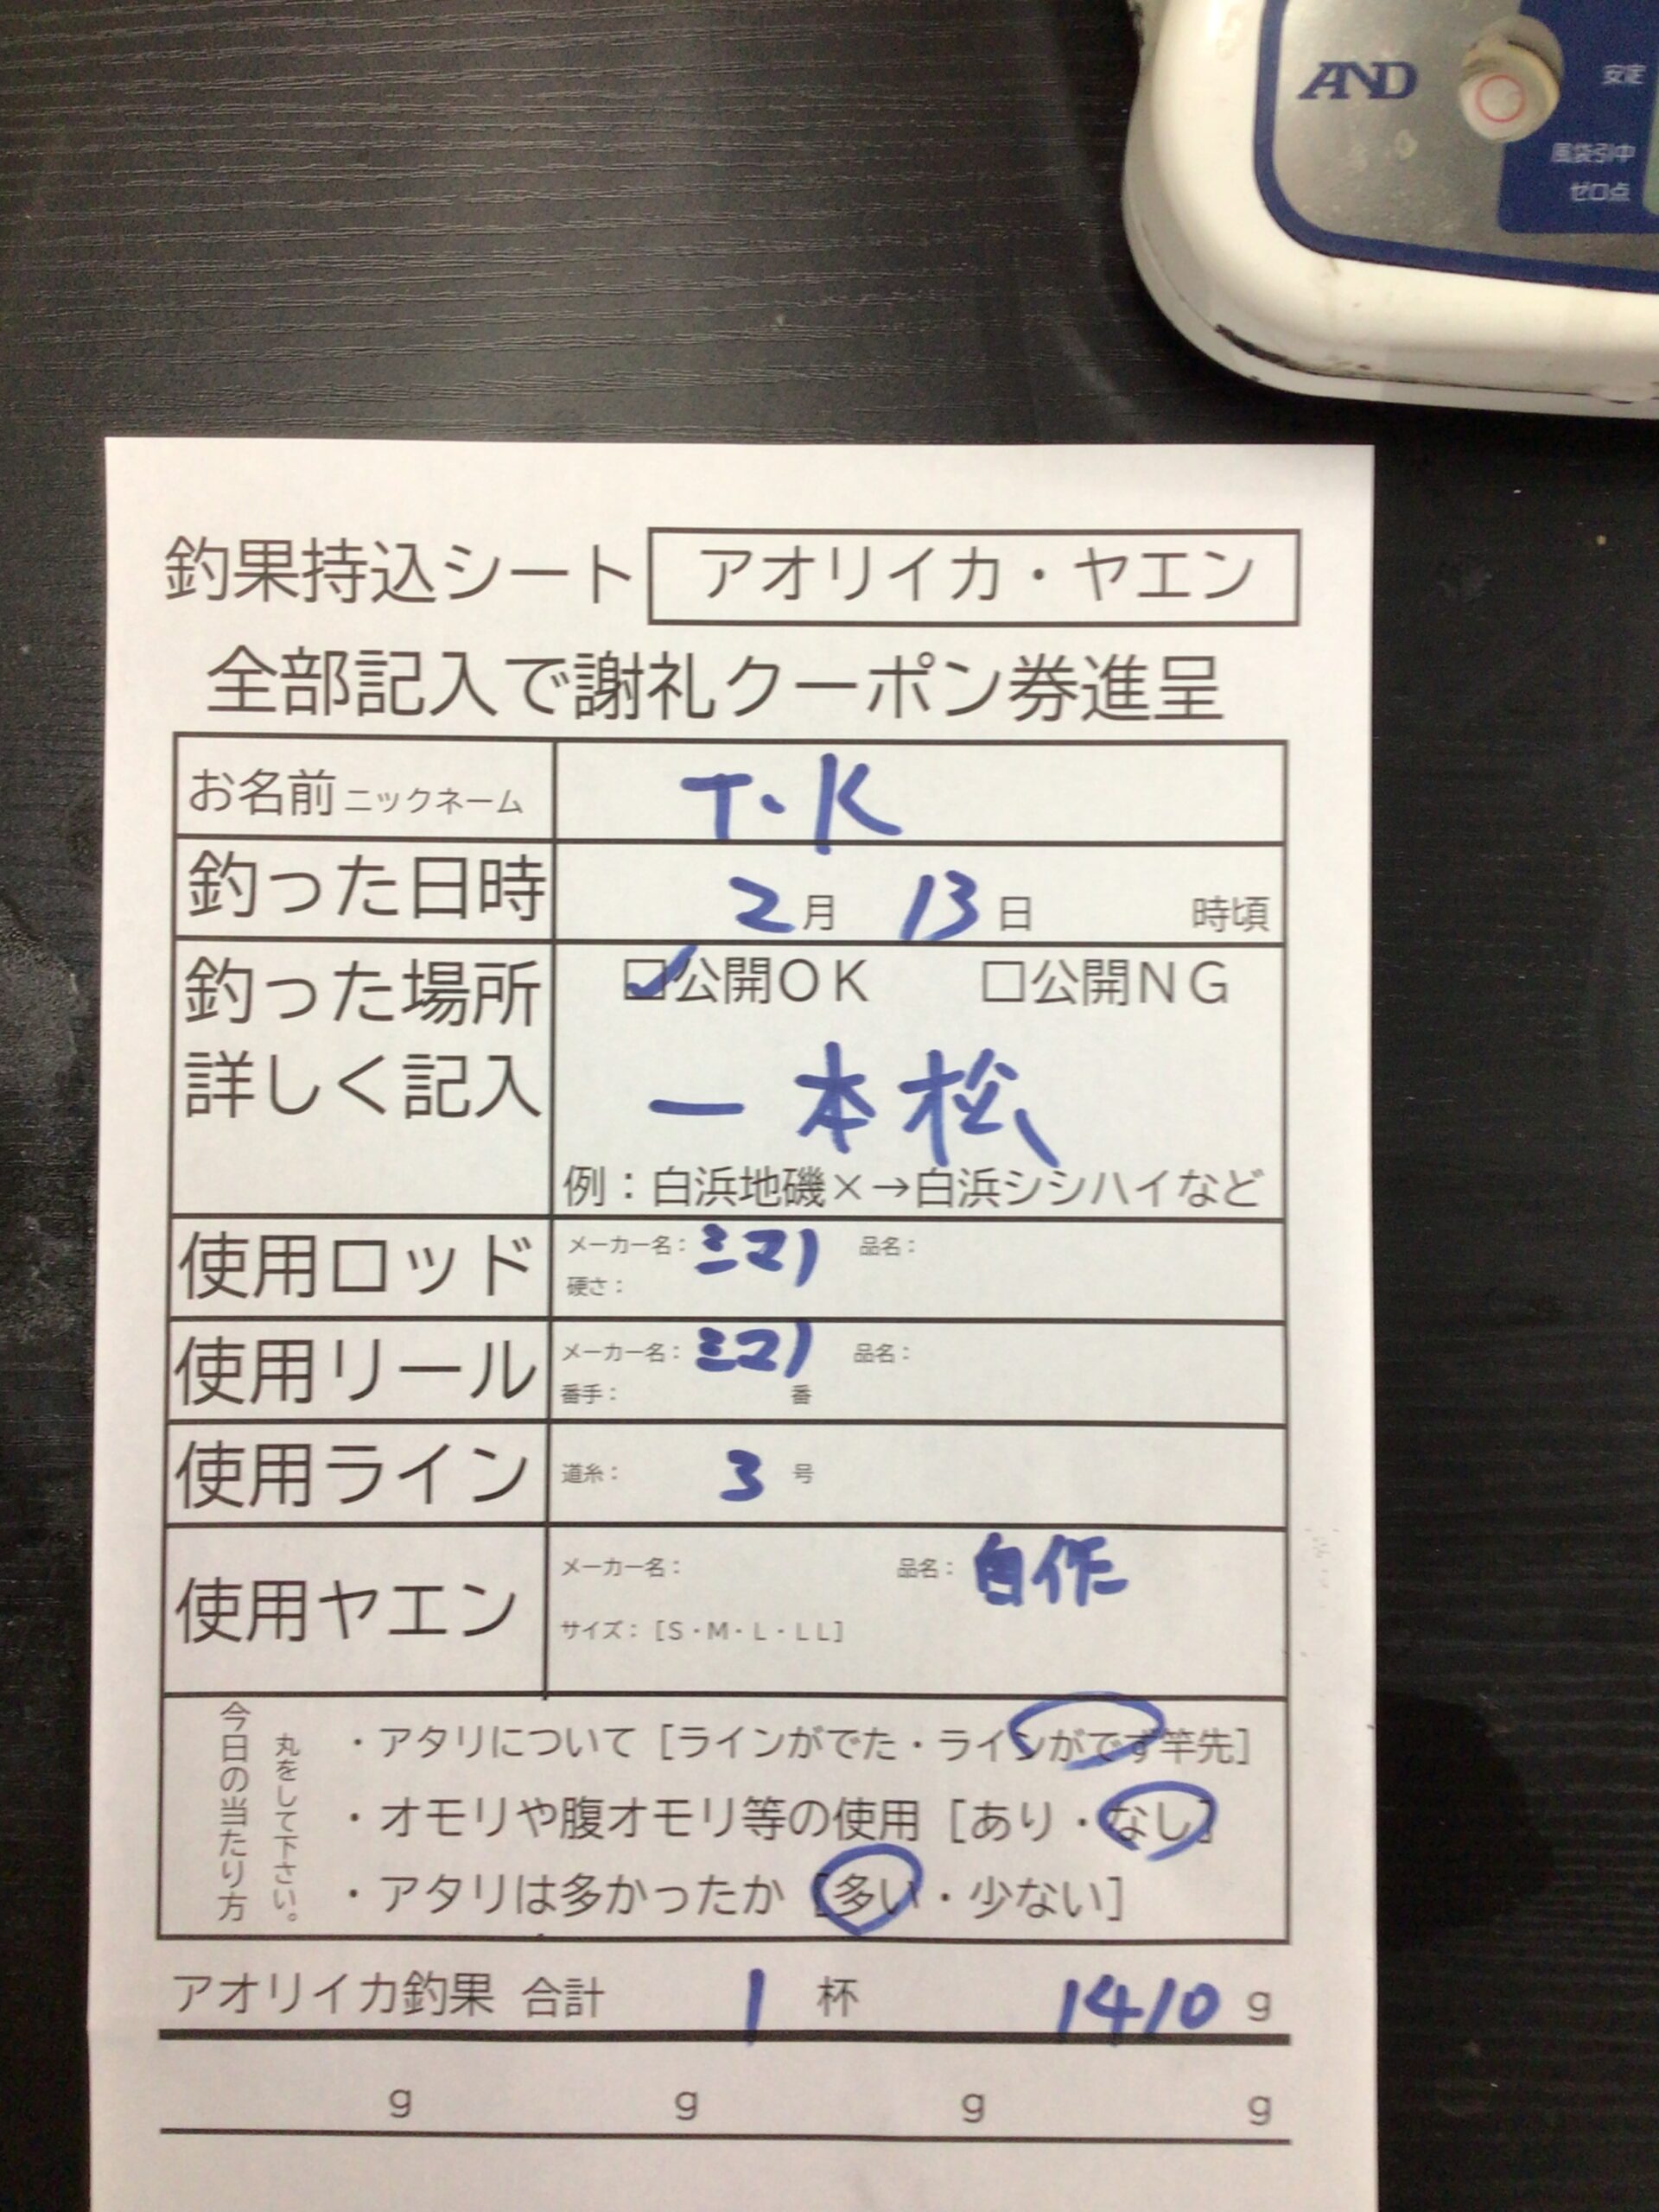 AND
安定
風袋引中
ゼロ点
釣果持込シート アオリイカ・ヤエン
全部記入で謝礼クーポン券進呈
お名前 ニックネーム T・K
釣った日時 2月 13日 時頃
釣った場所 ☑公開OK □公開NG
詳しく記入 一本松
例：白浜地磯×→白浜シシハイなど
使用ロッド メーカー名： シマノ 品名：
硬さ：
使用リール メーカー名： シマノ 品名：
番手： 番
使用ライン 道糸： 3 号
使用ヤエン メーカー名： 品名： 自作
サイズ：［S・M・L・LL］
今日の当たり方
丸をして下さい。
・アタリについて［ラインがでた・ラインがでず竿先］
・オモリや腹オモリ等の使用［あり・なし］
・アタリは多かったか［多い・少ない］
アオリイカ釣果 合計 1 杯 1410 g
g g g g